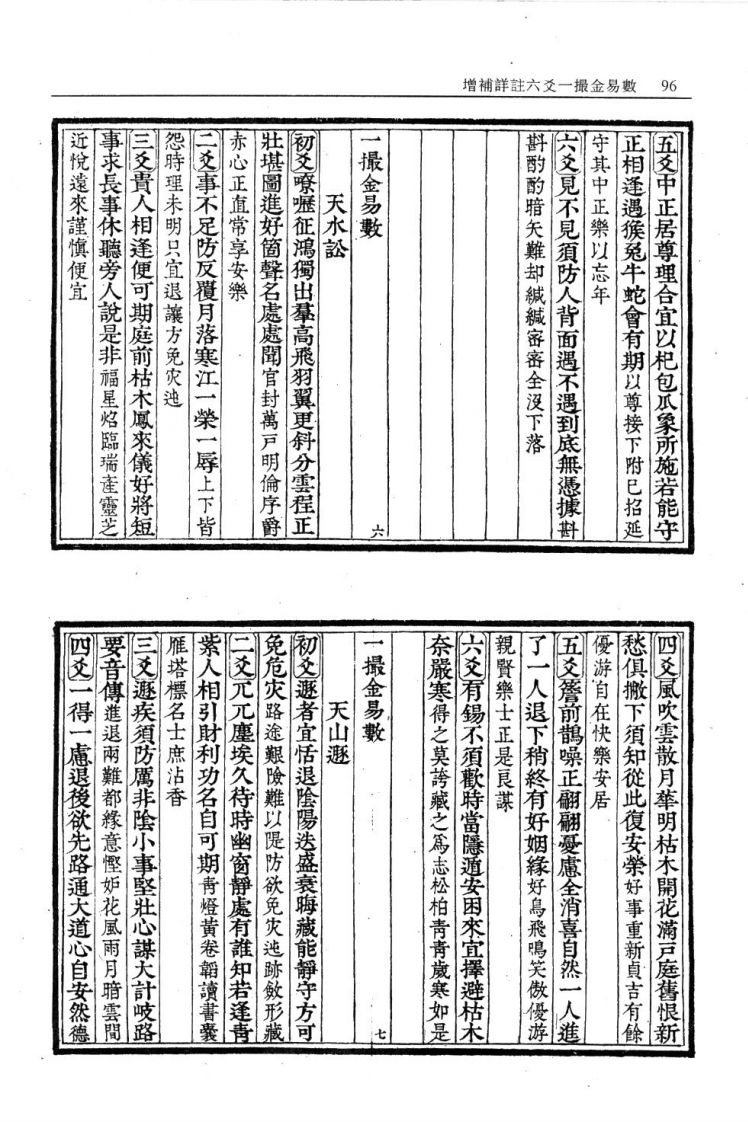 增補詳註六爻一撮金易數 96
五爻中正居尊理合宜以杞包瓜象所施若能守
正相逢遇猴兔牛蛇會有期以尊接下附已招延
守其中正樂以忘年
六爻見不見須防人背面遇不遇到底無憑據斟
斟酌酌暗矢難却緘緘密密全沒下落
一撮金易數
六
天水訟
初爻嘹嚦征鴻獨出羣高飛羽翼更斜分雲程正
壯堪圖進好箇聲名處處聞官封萬戶明倫序爵
赤心正直常享安樂
二爻事不足防反覆月落寒江一榮一辱上下皆
怨時理未明只宜退讓方免灾迍
三爻貴人相逢便可期庭前枯木鳳來儀好將短
事求長事休聽旁人說是非福星炤臨瑞產靈芝
近悅遠來謹愼便宜
四爻風吹雲散月華明枯木開花滿戸庭舊恨新
愁俱撇下須知從此復安榮好事重新貞吉有餘
優游自在快樂安居
五爻簷前鵲噪正翩翩憂慮全消喜自然一人進
了一人退下稍終有好姻緣好鳥飛鳴笑傲優游
親賢樂士正是良謀
六爻有錫不須歡時當隱遁安困來宜擇避枯木
奈嚴寒得之莫誇藏之爲志松柏靑靑歲寒如是
一撮金易數
七
天山遯
初爻遯者宜恬退陰陽迭盛衰晦藏能靜守方可
免危灾路途艱險難以隄防欲免灾迍跡斂形藏
二爻兀兀塵埃久待時幽窗靜處有誰知若逢靑
紫人相引財利功名自可期靑燈黃卷韜讀書囊
雁塔標名士庶沾香
三爻遯疾須防厲非陰小事堅壯心謀大計岐路
要音傳進退兩難都緣意慳妒花風雨月暗雲間
四爻一得一慮退後欲先路通大道心自安然德